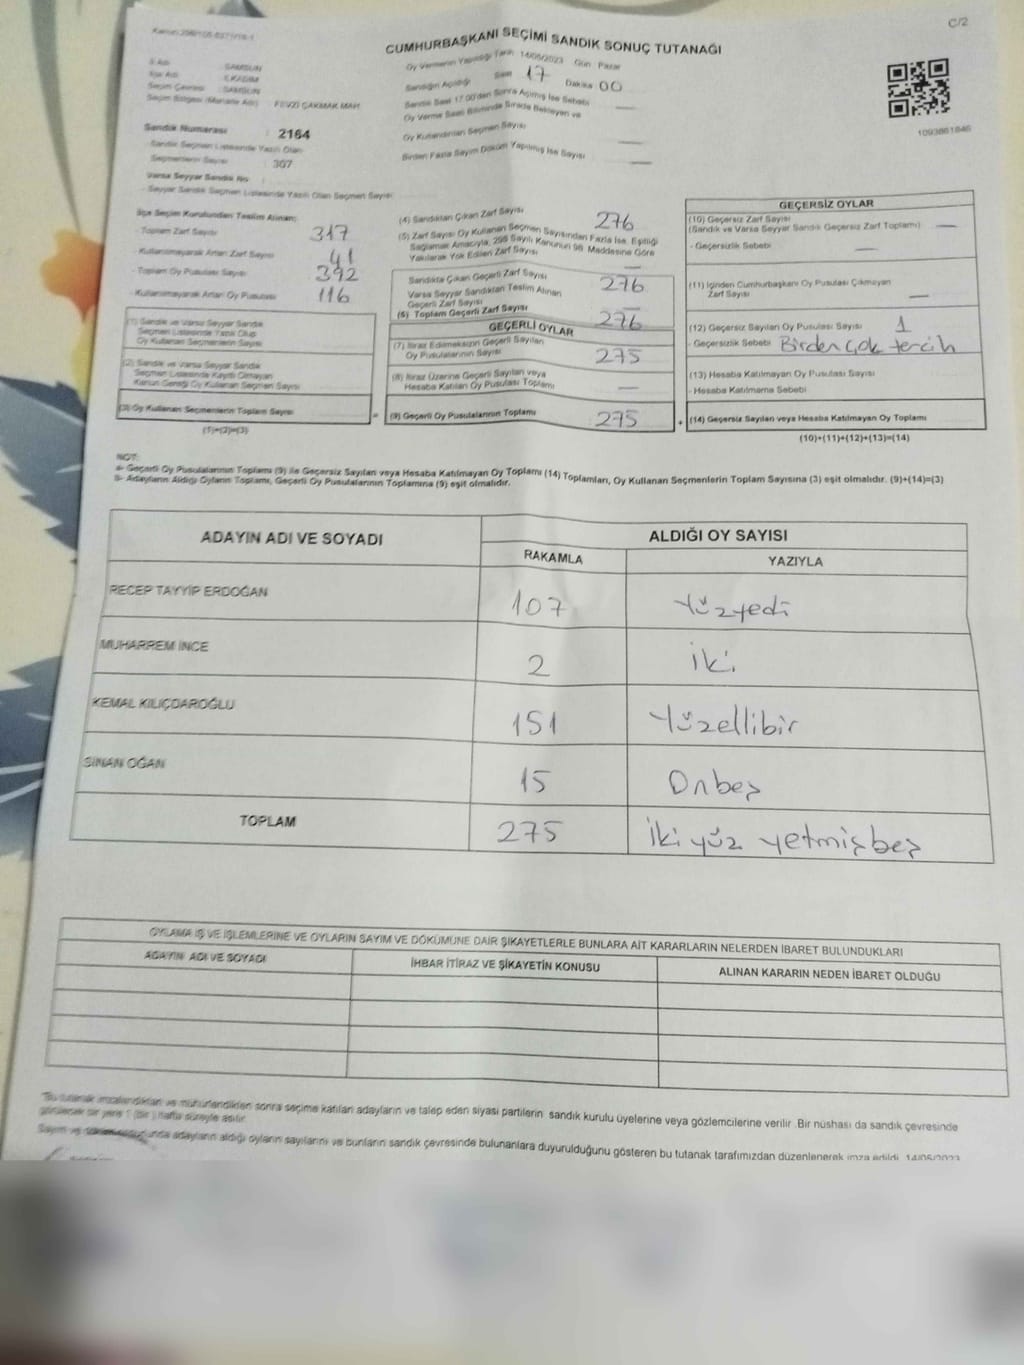 C/2
CUMHURBAŞKANI SEÇİMİ SANDIK SONUÇ TUTANAĞI
Oy Vermenin Yapıldığı Tarih 14/05/2023 Gün Pazar
Sandığın Açıldığı Saat 17 Dakika 00
Sandık Saat 17.00'den Sonra Açılmış İse Sebebi
Oy Verme Saati Bitiminde Sırada Bekleyen ve
Oy Kullandırılan Seçmen Sayısı
Birden Fazla Sayım Döküm Yapılmış İse Sayısı
1093861846
İl Adı : SAMSUN
İlçe Adı : İLKADIM
Seçim Çevresi : SAMSUN
Seçim Bölgesi (Mahalle Adı) : FEVZİ ÇAKMAK MAH.
Sandık Numarası : 2164
Sandık Seçmen Listesinde Yazılı Olan
Seçmenlerin Sayısı : 307
Varsa Seyyar Sandık No :
- Seyyar Sandık Seçmen Listesinde Yazılı Olan Seçmen Sayısı :
İlçe Seçim Kurulundan Teslim Alınan;
- Toplam Zarf Sayısı 317
- Kullanılmayarak Artan Zarf Sayısı 41
- Toplam Oy Pusulası Sayısı 392
- Kullanılmayarak Artan Oy Pusulası 116
(1) Sandık ve Varsa Seyyar Sandık
Seçmen Listesinde Yazılı Olup
Oy Kullanan Seçmenlerin Sayısı
(2) Sandık ve Varsa Seyyar Sandık
Seçmen Listesinde Kayıtlı Olmayan
Kanun Gereği Oy Kullanan Seçmen Sayısı
(3) Oy Kullanan Seçmenlerin Toplam Sayısı
(1)+(2)=(3)
(4) Sandıktan Çıkan Zarf Sayısı 276
(5) Zarf Sayısı Oy Kullanan Seçmen Sayısından Fazla İse, Eşitliği
Sağlamak Amacıyla, 298 Sayılı Kanunun 98. Maddesine Göre
Yakılarak Yok Edilen Zarf Sayısı —
Sandıkta Çıkan Geçerli Zarf Sayısı 276
Varsa Seyyar Sandıktan Teslim Alınan
Geçerli Zarf Sayısı —
(6) Toplam Geçerli Zarf Sayısı 276
GEÇERLİ OYLAR
(7) İtiraz Edilmeksizin Geçerli Sayılan
Oy Pusulalarının Sayısı 275
(8) İtiraz Üzerine Geçerli Sayılan veya
Hesaba Katılan Oy Pusulası Toplamı —
= (9) Geçerli Oy Pusulalarının Toplamı 275
GEÇERSİZ OYLAR
(10) Geçersiz Zarf Sayısı
(Sandık ve Varsa Seyyar Sandık Geçersiz Zarf Toplamı) —
- Geçersizlik Sebebi —
(11) İçinden Cumhurbaşkanı Oy Pusulası Çıkmayan
Zarf Sayısı —
(12) Geçersiz Sayılan Oy Pusulası Sayısı 1
- Geçersizlik Sebebi Birden çok tercih
(13) Hesaba Katılmayan Oy Pusulası Sayısı
- Hesaba Katılmama Sebebi
+ (14) Geçersiz Sayılan veya Hesaba Katılmayan Oy Toplamı
(10)+(11)+(12)+(13)=(14)
NOT:
a- Geçerli Oy Pusulalarının Toplamı (9) ile Geçersiz Sayılan veya Hesaba Katılmayan Oy Toplamı (14) Toplamları, Oy Kullanan Seçmenlerin Toplam Sayısına (3) eşit olmalıdır. (9)+(14)=(3)
b- Adayların Aldığı Oyların Toplamı, Geçerli Oy Pusulalarının Toplamına (9) eşit olmalıdır.
ADAYIN ADI VE SOYADI
ALDIĞI OY SAYISI
RAKAMLA YAZIYLA
RECEP TAYYİP ERDOĞAN 107 Yüzyedi
MUHARREM İNCE 2 İki
KEMAL KILIÇDAROĞLU 151 Yüzellibir
SİNAN OĞAN 15 Onbeş
TOPLAM 275 İki yüz yetmişbeş
OYLAMA İŞ VE İŞLEMLERİNE VE OYLARIN SAYIM VE DÖKÜMÜNE DAİR ŞİKAYETLERLE BUNLARA AİT KARARLARIN NELERDEN İBARET BULUNDUKLARI
ADAYIN ADI VE SOYADI İHBAR İTİRAZ VE ŞİKAYETİN KONUSU ALINAN KARARIN NEDEN İBARET OLDUĞU
"Bu tutanak imzalandıktan ve mühürlendikten sonra seçime katılan adayların ve talep eden siyasi partilerin sandık kurulu üyelerine veya gözlemcilerine verilir .Bir nüshası da sandık çevresinde
görülecek bir yere 1 (bir ) hafta süreyle asılır.
Sayım ve adayların aldığı oyların sayılarını ve bunların sandık çevresinde bulunanlara duyurulduğunu gösteren bu tutanak tarafımızdan düzenlenerek imza edildi. 14/05/2023